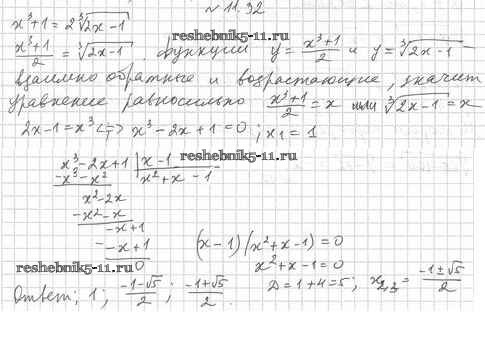 № 11.32
x³+1 = 2∛(2x-1)
reshebnik5-11.ru
(x³+1)/2 = ∛(2x-1). Функции y = (x³+1)/2 и y = ∛(2x-1) -
взаимно обратные и возрастающие, значит
уравнение равносильно (x³+1)/2 = x или ∛(2x-1) = x
2x-1=x³ <=> x³-2x+1=0; x₁=1
x³-2x+1 | x-1
reshebnik5-11.ru
-x³-x² | x²+x-1
x²-2x
-x²-x
-x+1
--x+1
0
(x-1)(x²+x-1)=0
x²+x-1=0
reshebnik5-11.ru
D=1+4=5; x₂,₃ = (-1±√5)/2
Ответ: 1; (-1-√5)/2; (-1+√5)/2.